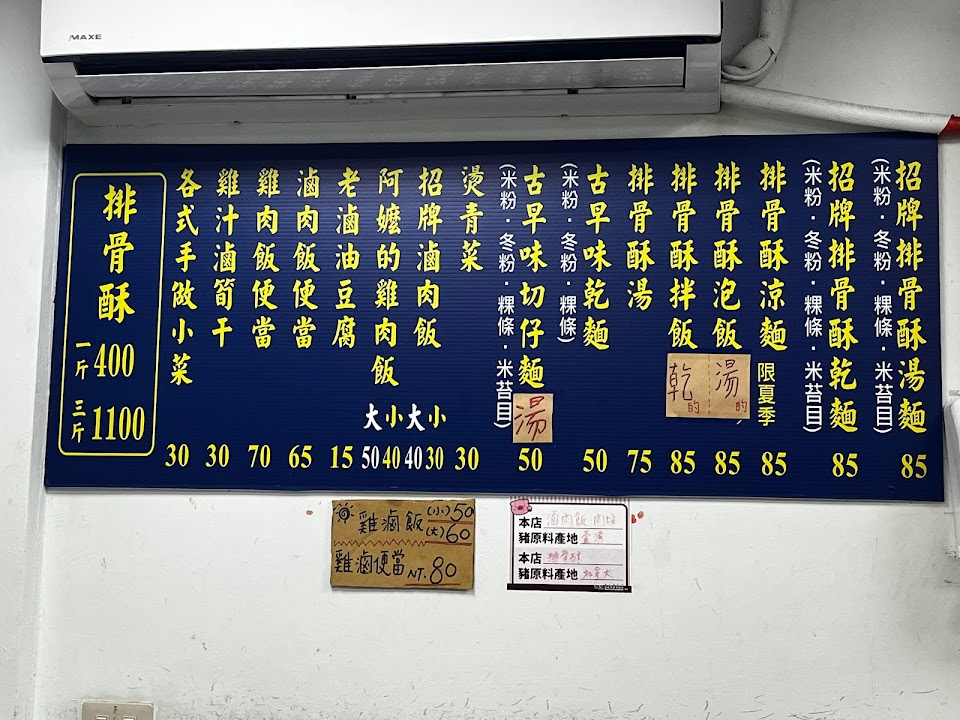 MAXE
招牌排骨酥湯麵
(米粉·冬粉·粿條·米苔目)
85
招牌排骨酥乾麵
(米粉·冬粉·粿條·米苔目)
85
排骨酥涼麵
限夏季
85
排骨酥泡飯
湯的
85
排骨酥拌飯
乾的
85
排骨酥湯
75
古早味乾麵
(米粉·冬粉·粿條)
50
古早味切仔麵
湯
(米粉·冬粉·粿條·米苔目)
50
燙青菜
30
招牌滷肉飯
大小
40 30
阿嬤的雞肉飯
大小
50 40
老滷油豆腐
15
滷肉飯便當
65
雞肉飯便當
70
雞汁滷筍干
30
各式手做小菜
30
排骨酥
一斤 400
三斤 1100
雞滷飯 (小) 50
(大) 60
雞滷便當 NT. 80
本店 滷肉飯·肉
豬原料產地 臺灣
本店 排骨酥
豬原料產地 加拿大